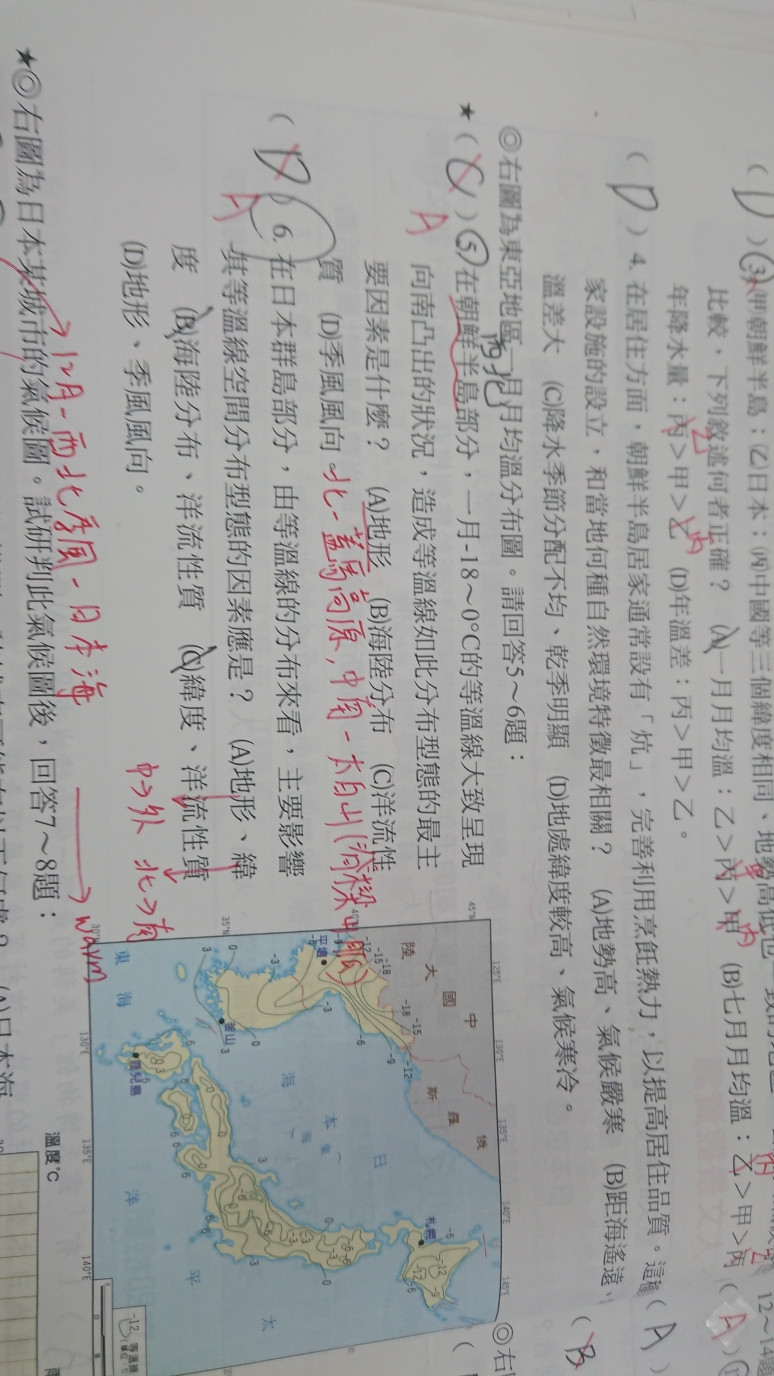 ( D ) 3. 甲朝鮮半島；(乙)日本；(丙)中國等三個緯度相同、地勢高低也一致的地
比較，下列敘述何者正確？ (A)一月月均溫：乙＞丙＞甲 (B)七月月均溫：乙＞甲＞丙
年降水量：丙＞甲＞乙 (D)年溫差：丙＞甲＞乙。
( D ) 4. 在居住方面，朝鮮半島居家通常設有「炕」，完善利用烹飪熱力，以提高居住品質。這種
家設施的設立，和當地何種自然環境特徵最相關？ (A)地勢高、氣候嚴寒 (B)距海遙遠、
溫差大 (C)降水季節分配不均、乾季明顯 (D)地處緯度較高、氣候寒冷。
◎右圖為東亞地區一月月均溫分布圖。請回答5～6題：
★ ( C ) 5. 在朝鮮半島部分，一月-18～0°C的等溫線大致呈現
A
向南凸出的狀況，造成等溫線如此分布型態的最主
要因素是什麼？ (A)地形 (B)海陸分布 (C)洋流性
質 (D)季風風向
北-蓋馬高原,中南-太白山(脊樑山脈)
( D ) 6. 在日本群島部分，由等溫線的分布來看，主要影響
A
其等溫線空間分布型態的因素應是？ (A)地形、緯
度 (B)海陸分布、洋流性質 (C)緯度、洋流性質
(D)地形、季風風向。
中→外 北→南
12月-西北季風-日本海 → warm
★◎右圖為日本某城市的氣候圖。試研判此氣候圖後，回答7～8題：
(A)日本海
12～14題
( A )
( A )
( B )
◎右
中國大陸
俄羅斯
平壤
釜山
日本海
東海
鹿兒島
札幌
太平洋
125°E
130°E
135°E
140°E
145°E
45°N
40°N
35°N
30°N
130°E
135°E
140°E
-12 等溫線
溫度°C